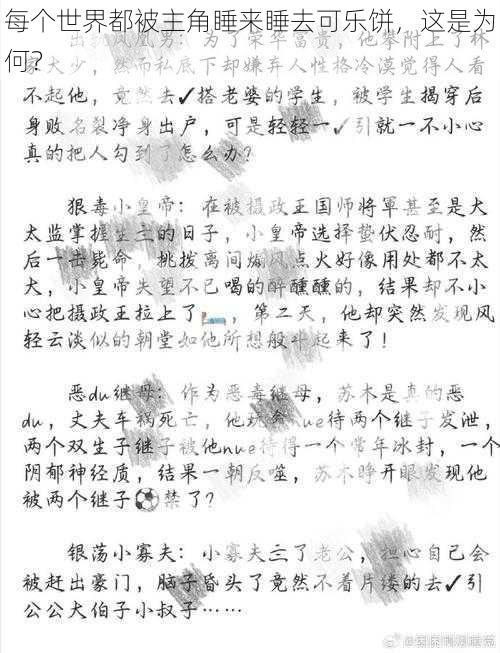 每个世界都被主角睡来睡去可乐饼，这是为
何？
出轨凤凰男：为了荣华富贵，他攀附上了林
家大少，然而私底下却嫌弃人性格冷漠觉得人看
不起他，竟然去✓搭老婆的学生，被学生揭穿后
身败名裂净身出户，可是轻轻一✓引就一不小心
真的把人勾到了怎么办？
狠毒小皇帝：在被摄政王国师将軍甚至是大
太监掌握生主的日子，小皇帝选择蛰伏忍耐，然
后一击毙命，挑拨离间煽风点火好像用处都不太
大，小皇帝失望不已喝的醉醺醺的，结果却不小
心把摄政王拉上了🛏️，第二天，他却突然发现风
轻云淡似的朝堂如他所想般斗起来了！
恶du继母：作为恶毒继母，苏木是真的恶
du，丈夫车祸死亡，他玩命nue待两个继子发泄，
两个双生子继子被他nue待得一个常年冰封，一个
阴郁神经质，结果一朝反噬，苏木睁开眼发现他
被两个继子⚽禁了？
银荡小寡夫：小寡夫亖了老公，担心自己会
被赶出豪门，脑子昏头了竟然不着片缕的去✓引
公公大伯子小叔子……